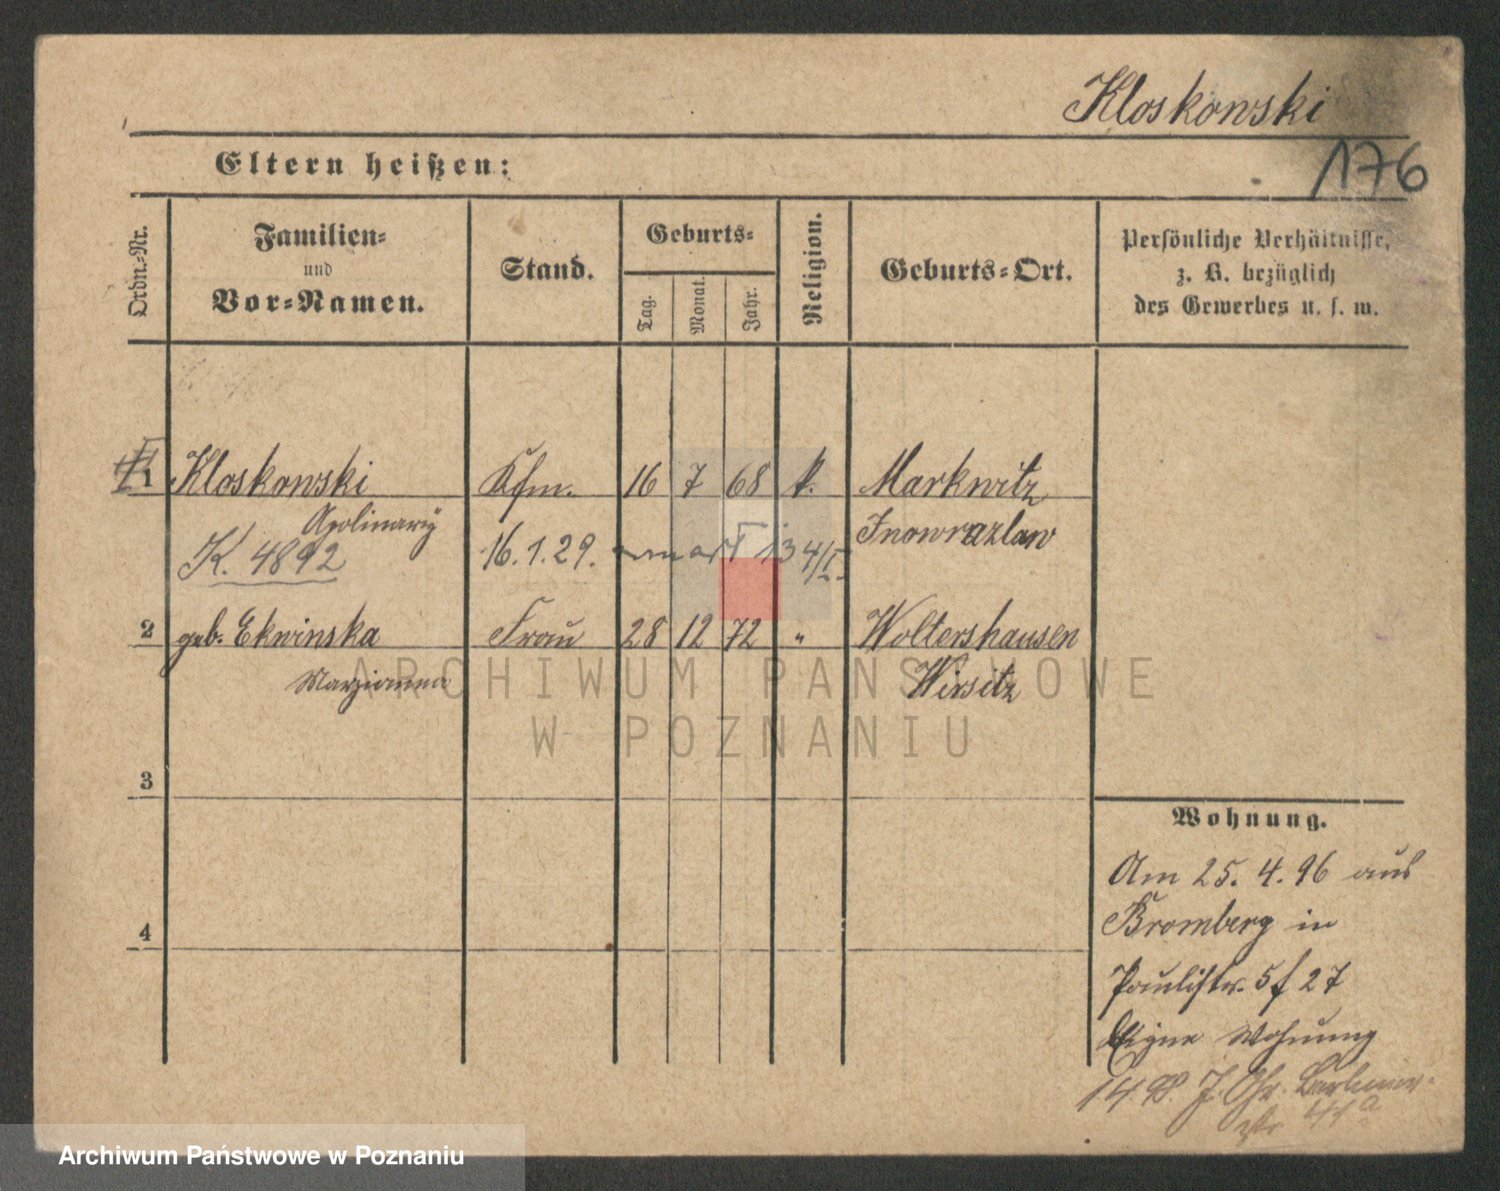 Kloskowski
176
Eltern heißen:
Ordn.-Nr.
Familien-
und
Vor-Namen.
Stand.
Geburts-
Tag.
Monat.
Jahr.
Religion.
Geburts-Ort.
Persönliche Verhältnisse,
z. B. bezüglich
des Gewerbes u. s. w.
1 Kloskowski Kfm. 16 7 68 k. Markwitz
Apolinary Inowrazlaw
K. 4892 16.1.29.
2 geb. Ekwinska Frau 28 12 72 " Woltershausen
Marzianna Wirsitz
ARCHIWUM PAŃSTWOWE
W POZNANIU
3
4
Wohnung.
Am 25. 4. 96 aus
Bromberg in
Paulistr. 5 f 27
Eigne Wohnung
Archiwum Państwowe w Poznaniu